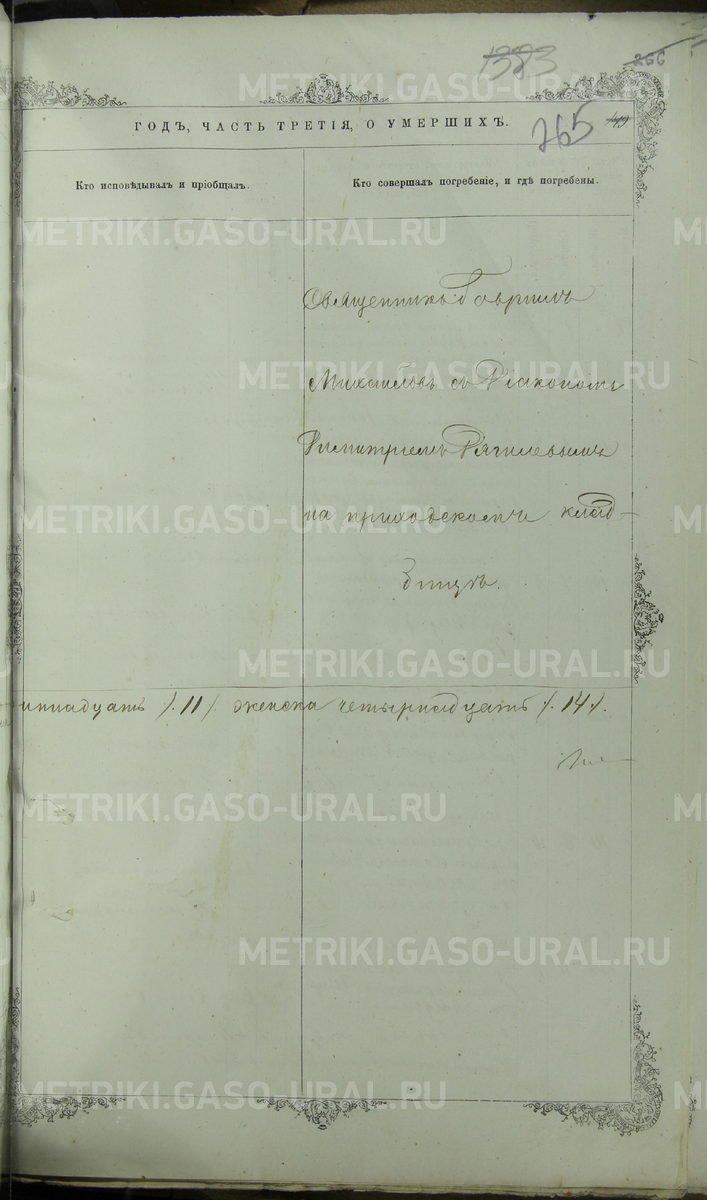 1383
266
265
49
ГОДЪ, ЧАСТЬ ТРЕТІЯ, О УМЕРШИХЪ.
Кто исповѣдывалъ и пріобщалъ.
Кто совершалъ погребеніе, и гдѣ погребены.
Священникъ Гавріилъ
Михайловъ съ Діакономъ
Димитріемъ Рягилевымъ
на приходскомъ клад-
бищѣ.
иннадцать /.11/. женска четырнадцать /.14/.
METRIKI.GASO-URAL.RU